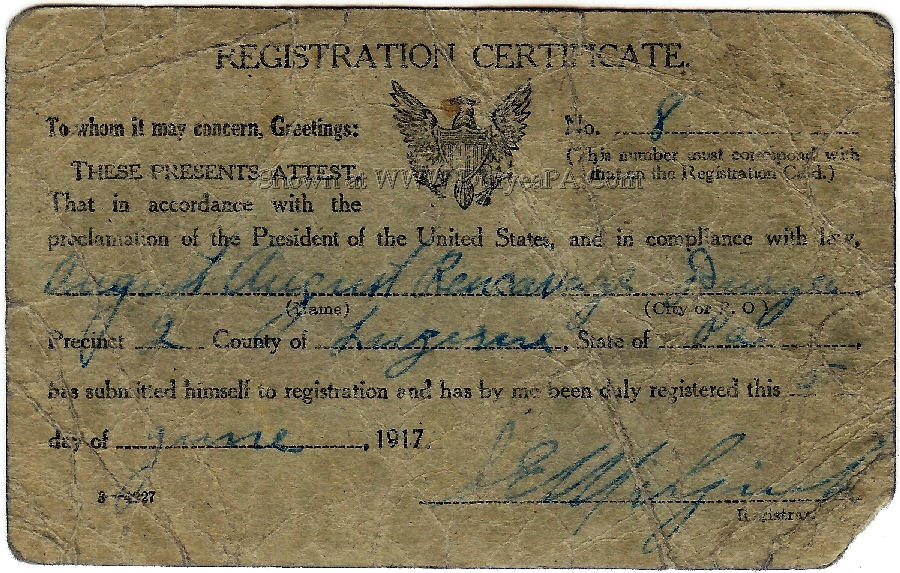 REGISTRATION CERTIFICATE.
To whom it may concern, Greetings:
No. 8
(This number must correspond with
that on the Registration Card.)
THESE PRESENTS ATTEST,
Shown at WWW.DuryeaPA.Com
That in accordance with the
proclamation of the President of the United States, and in compliance with law,
August August Rencavage Duryea
(Name) (City or P. O.)
Precinct 2 County of Luzerne, State of Pa.
has submitted himself to registration and has by me been duly registered this 5
day of June, 1917.
Registrar.